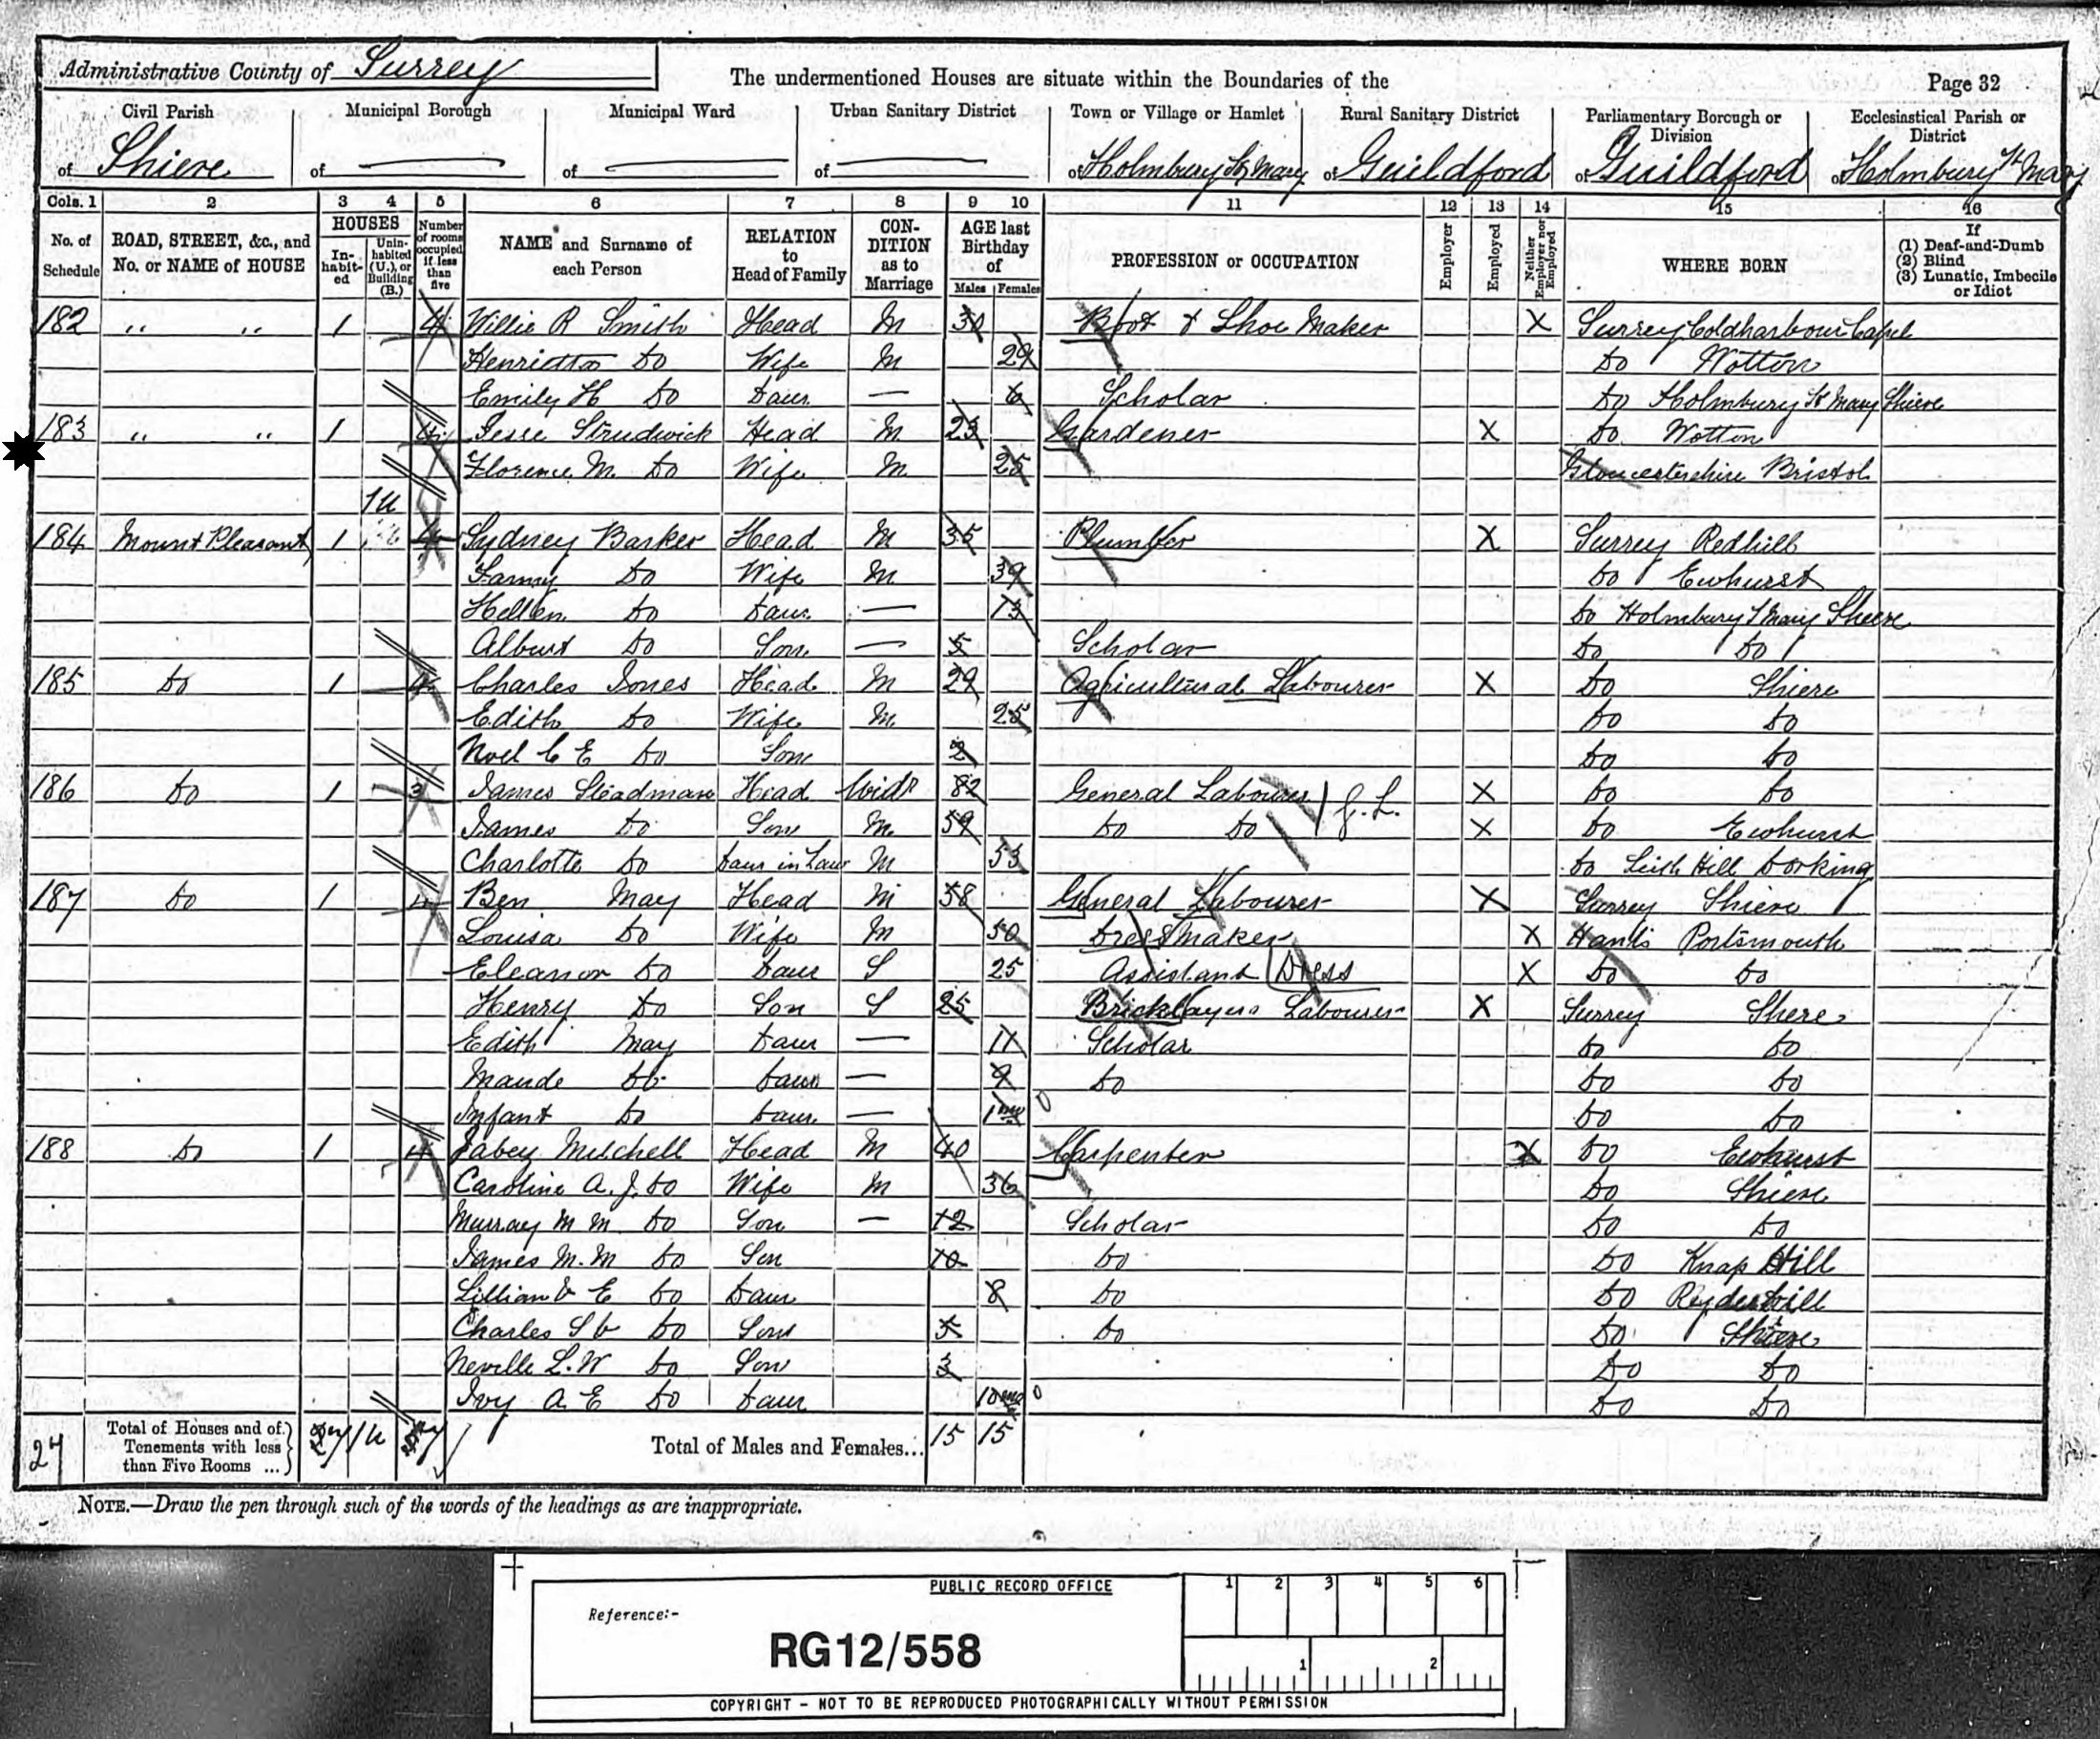 Administrative County of Surrey
The undermentioned Houses are situate within the Boundaries of the
Page 32
Civil Parish of Shiere
Municipal Borough of —
Municipal Ward of —
Urban Sanitary District of —
Town or Village or Hamlet of Holmbury St Mary
Rural Sanitary District of Guildford
Parliamentary Borough or Division of Guildford
Ecclesiastical Parish or District of Holmbury St Mary
Cols. 1 2 3 4 5 6 7 8 9 10 11 12 13 14 15 16
No. of Schedule
ROAD, STREET, &c., and No. or NAME of HOUSE
HOUSES
In-habit-ed
Unin-habited (U.), or Building (B.)
Number of rooms occupied if less than five
NAME and Surname of each Person
RELATION to Head of Family
CON-DITION as to Marriage
AGE last Birthday of
Males Females
PROFESSION or OCCUPATION
Employer
Employed
Neither Employer nor Employed
WHERE BORN
If (1) Deaf-and-Dumb (2) Blind (3) Lunatic, Imbecile or Idiot
182 " " 1 4 Willie R Smith Head M 30 Boot & Shoe Maker X Surrey Coldharbour Capel
Henrietta Do Wife M 29 Do Wotton
Emily H Do Daur — 6 Scholar Do Holmbury St Mary Shiere
183 " " 1 4 Jesse Strudwick Head M 23 Gardener X Do Wotton
Florence M. Do Wife M 25 Gloucestershire Bristol
1U
184 Mount Pleasant 1 4 Sydney Barker Head M 35 Plumber X Surrey Redhill
Fanny Do Wife M 39 Do Ewhurst
Hellen Do Daur — 13 Do Holmbury St Mary Sheere
Albert Do Son — 5 Scholar Do Do
185 Do 1 4 Charles Jones Head M 29 Agricultural Labourer X Do Shiere
Edith Do Wife M 25 Do Do
Noel C E Do Son 2 Do Do
186 Do 1 3 James Steadman Head Widr 82 General Labourer G.L. X Do Do
James Do Son M 59 Do Do X Do Ewhurst
Charlotte Do Daur in Law M 53 Do Leith Hill Dorking
187 Do 1 4 Ben May Head M 58 General Labourer X Surrey Shiere
Louisa Do Wife M 50 Dressmaker X Hants Portsmouth
Eleanor Do Daur S 25 Assistant Dress X Do Do
Henry Do Son S 25 Bricklayers Labourer X Surrey Shere
Edith May Daur — 11 Scholar Do Do
Maude Do Daur — 9 Do Do Do
Infant Do Daur. — 1 mo 0 Do Do
188 Do 1 4 Jabey Mitchell Head M 40 Carpenter X Do Ewhurst
Caroline A. J. Do Wife M 36 Do Shiere
Murray M M Do Son — 12 Scholar Do Do
James M. M Do Son 10 Do Do Knap Hill
Lillian V E Do Daur 8 Do Do
Charles S Do Son 5 Do Do Shiere
Neville L. W Do Son 3 Do Do
Ivy A E Do Daur 10 mo 0 Do Do
27
Total of Houses and of Tenements with less than Five Rooms ...
1U
Total of Males and Females... 15 15
NOTE.—Draw the pen through such of the words of the headings as are inappropriate.
PUBLIC RECORD OFFICE
1 2 3 4 5 6
Reference:-
RG12/558
1 2
COPYRIGHT - NOT TO BE REPRODUCED PHOTOGRAPHICALLY WITHOUT PERMISSION